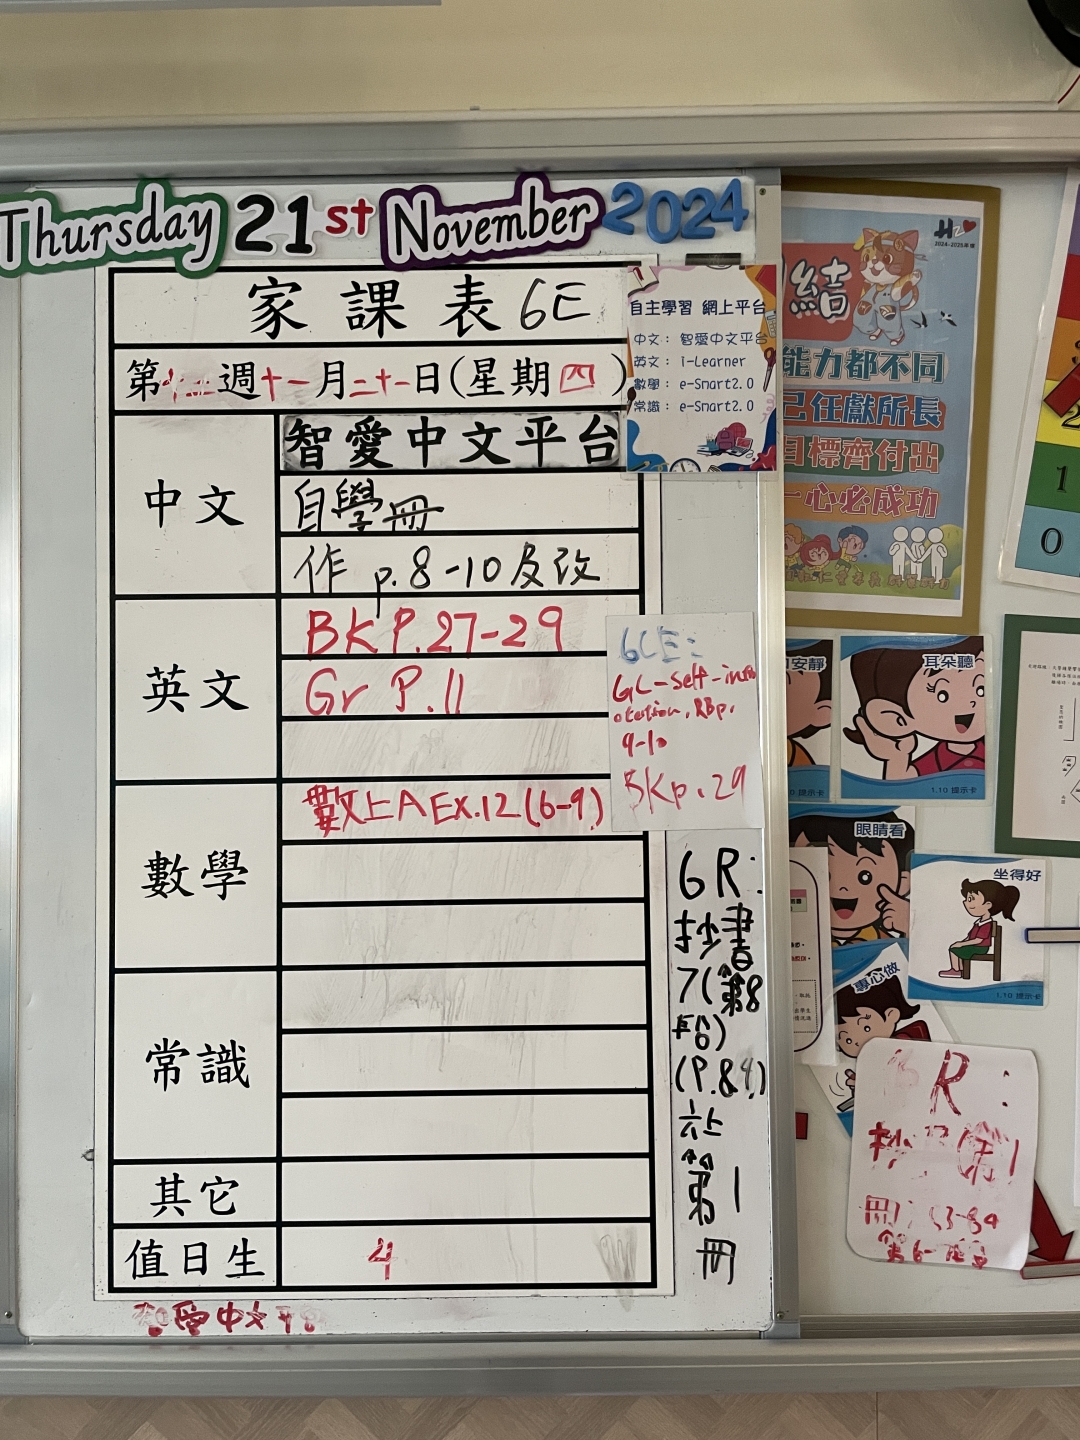 Thursday 21st November 2024
家課表 6E
第 週十一月二十一日(星期四)
中文
智愛中文平台
自學冊
作 p.8-10及改
英文
BK P.27-29
Gr P.11
數學
數上A Ex.12(6-9)
常識
其它
值日生
4
智愛中文平台
自主學習 網上平台
中文：智愛中文平台
英文：i-Learner
數學：e-Smart2.0
常識：e-Smart2.0
6CE:
GC-Self-
RBp.
9-10
BKp.29
6R:
抄書
7(第8
段)
(P.84)
六上
第1
冊
2024-2025年度
結
能力都不同
己任獻所長
目標齊付出
一心必成功
2
1
0
安靜
耳朵聽
1.10 提示卡
眼睛看
坐得好
1.10 提示卡
專心做
R:
抄 (第1
冊